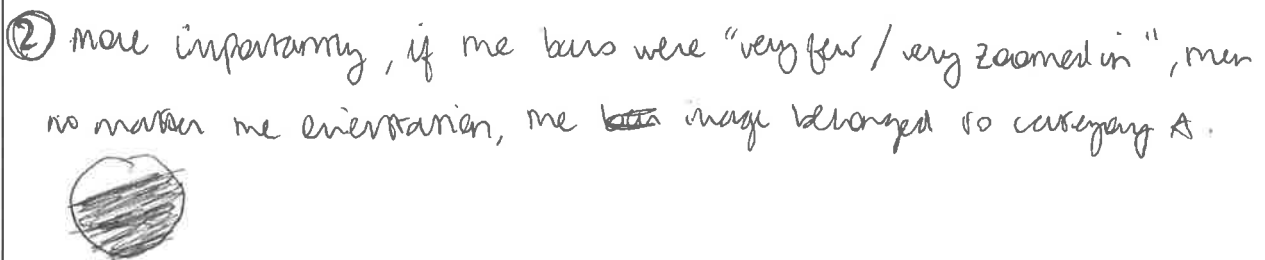 ② more importantly, if the bars were "very few / very zoomed in", then
no matter the orientation, the image belonged to category A.